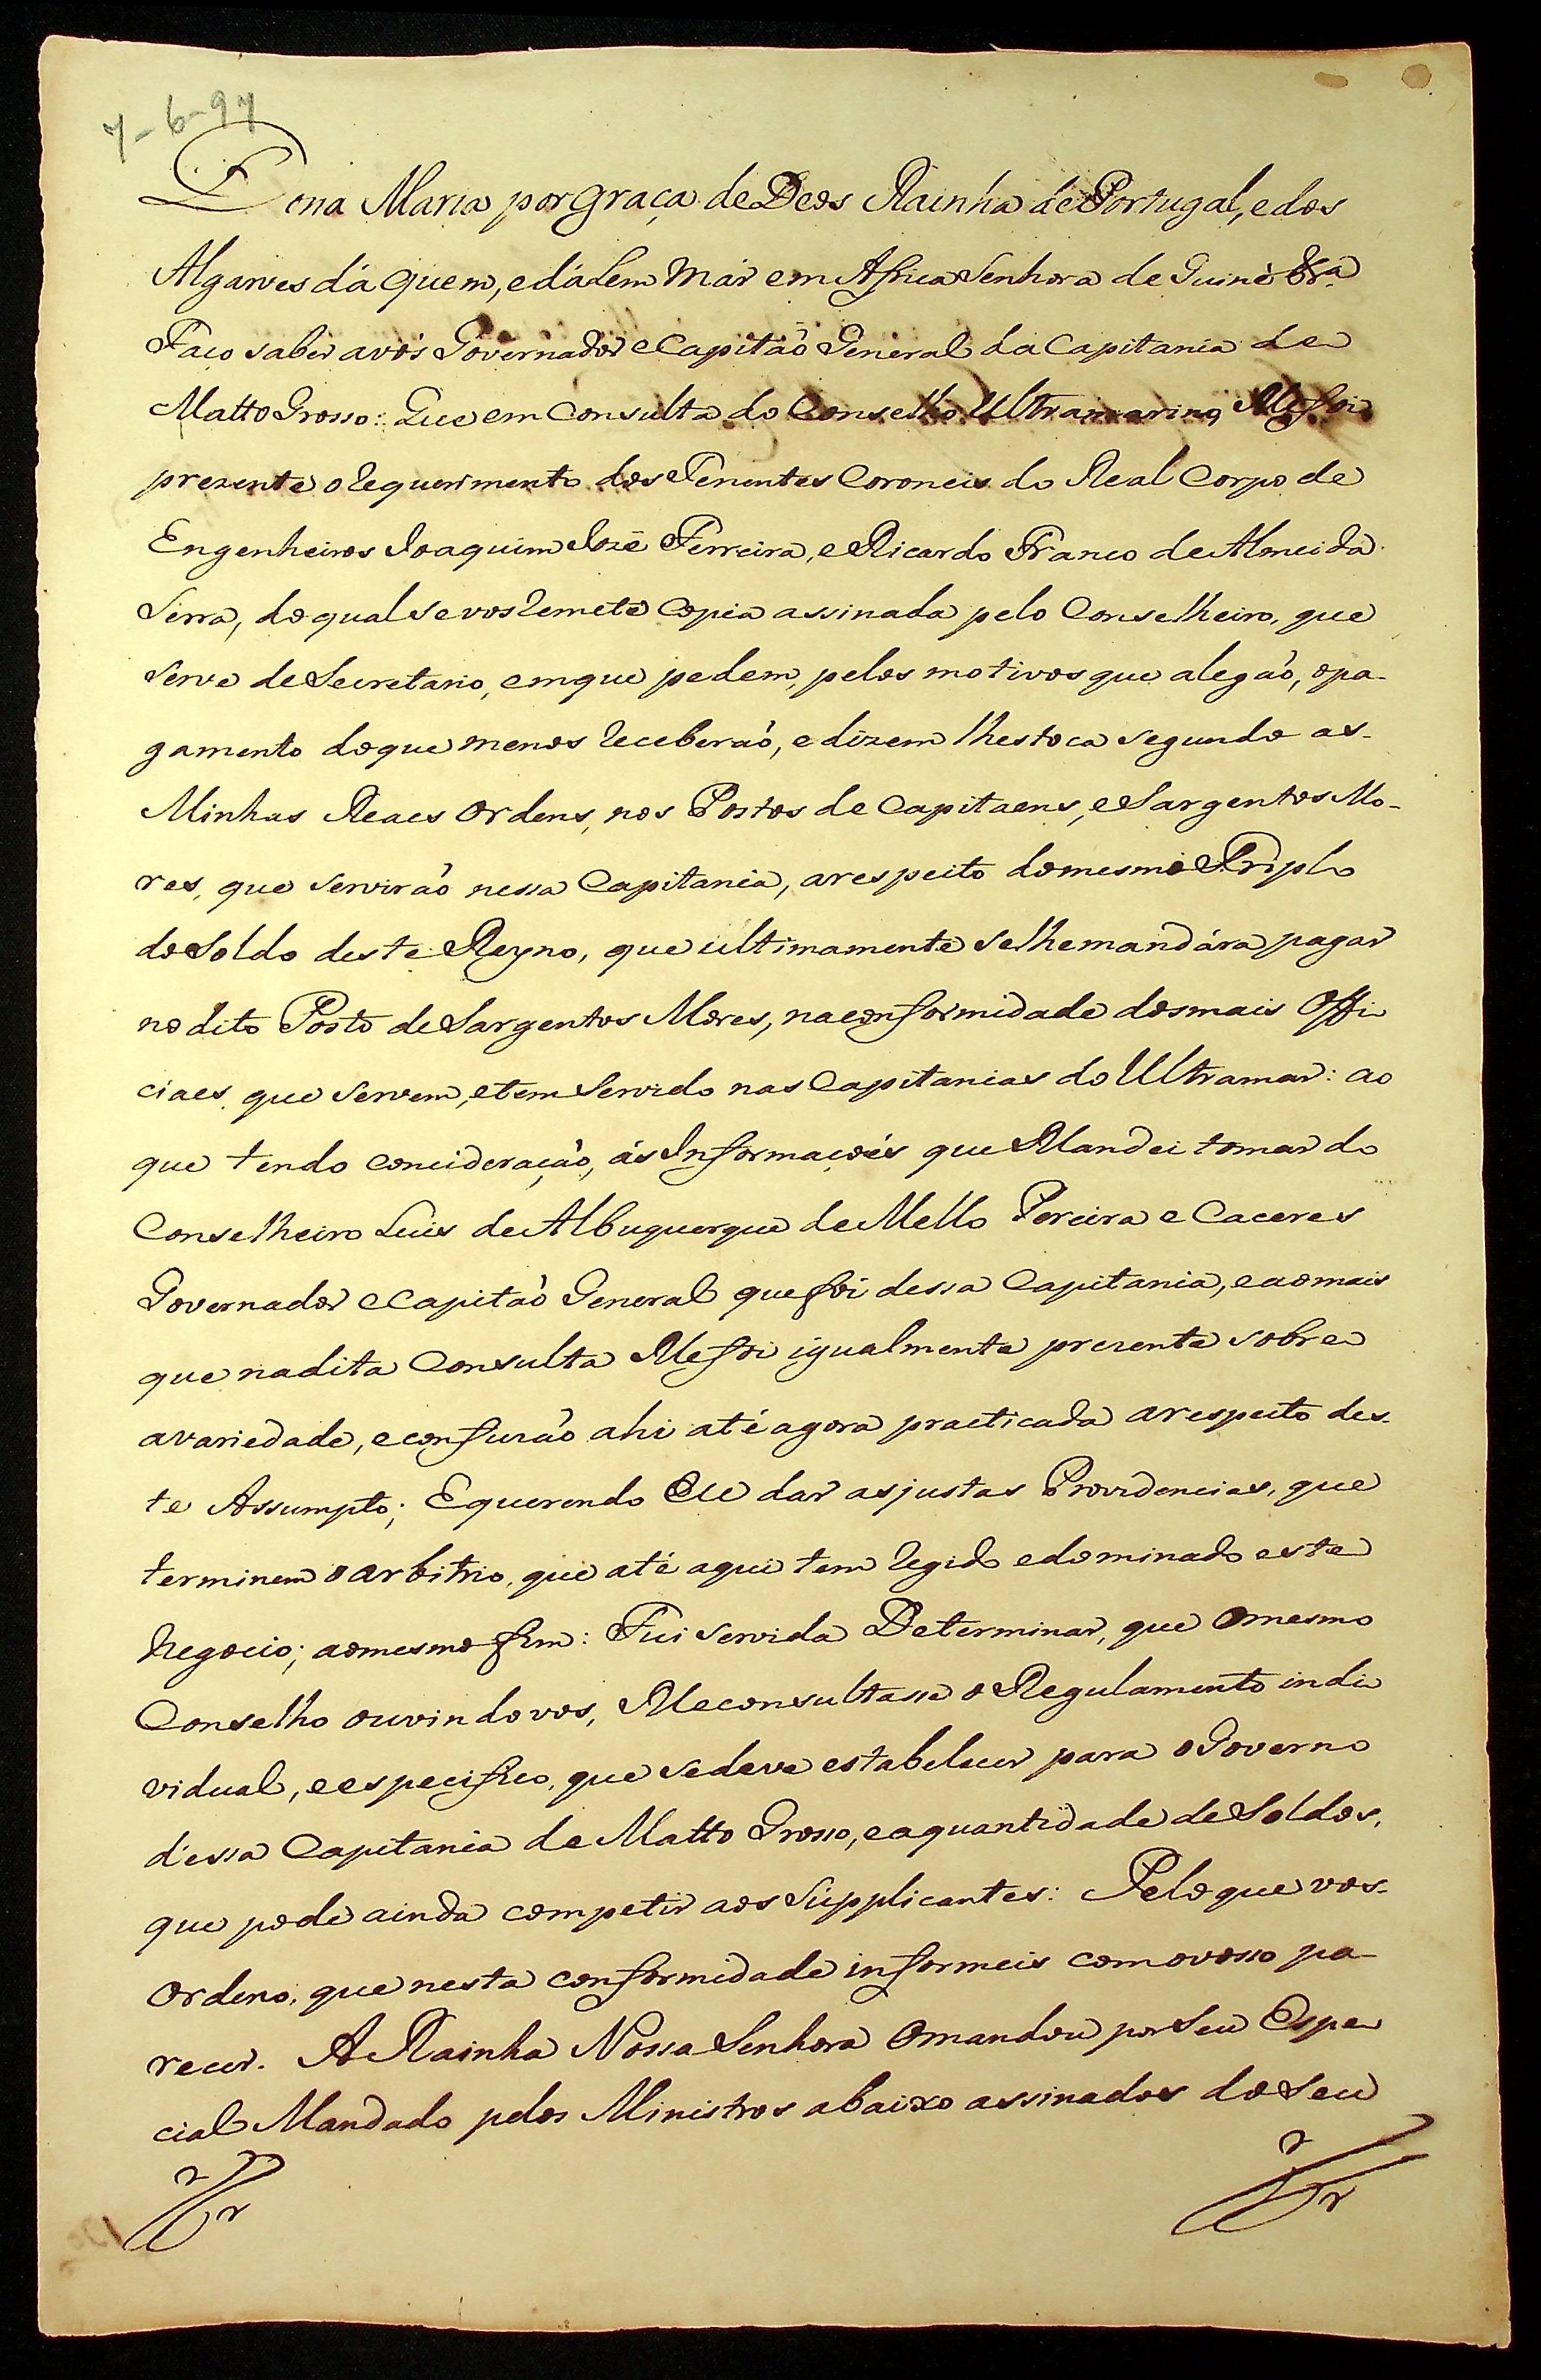 7-6-97
Dona Maria por graça de Deos Rainha de Portugal, e dos
Algarves dá quem, e dálem Mar em Africa Senhora de Guiné &ra
Faço saber a vós Governador e Capitão General da Capitania de
Matto Grosso: Que em Consulta do Conselho Ultramarino, Me foi
prezente o requerimento dos Tenentes Coroneis do Real Corpo de
Engenheiros Joaquim Jozé Ferreira, e Ricardo Franco de Almeida
Serra, do qual se vos remete Copia assinada pelo Conselheiro, que
serve de Secretario, em que pedem, pelos motivos que alegão, o pa-
gamento do que menos receberão, e dizem lhes toca segundo as
Minhas Reaes Ordens, nos Postos de Capitaens, e Sargentos Mo-
res, que servirão nessa Capitania, a respeito do mesmo Triplo
do Soldo deste Reyno, que ultimamente se lhe mandára pagar
no dito Posto de Sargentos Mores, na conformidade dos mais Offi-
ciaes, que servem, e tem servido nas Capitanias do Ultramar: ao
que tendo concideração, ás Informaçoēs que Mandei tomar do
Conselheiro Luis de Albuquerque de Mello Pereira e Caceres
Governador e Capitão General que foi dessa Capitania, e ao mais
que na dita Consulta Me foi igualmente prezente sobre
a variedade, e confuzão ahi até agora practicada a respeito des-
te Assumpto; E querendo Eu dar as justas Providencias, que
terminem o arbitrio, que até aqui tem regido e dominado este
Negocio; ao mesmo fim: Fui servida Determinar, que o mesmo
Conselho ouvindovos, Me consultasse o Regulamento indi-
vidual, e especifico, que se deve estabelecer para o Governo
d'essa Capitania de Matto Grosso, e a quantidade de Soldos,
que pode ainda competir aos Supplicantes: Pelo que vos
Ordeno, que nesta conformidade informeis com o vosso pa-
recer. A Rainha Nossa Senhora o mandou por Seu Espe-
cial Mandado pelos Ministros abaixo assinados do Seu